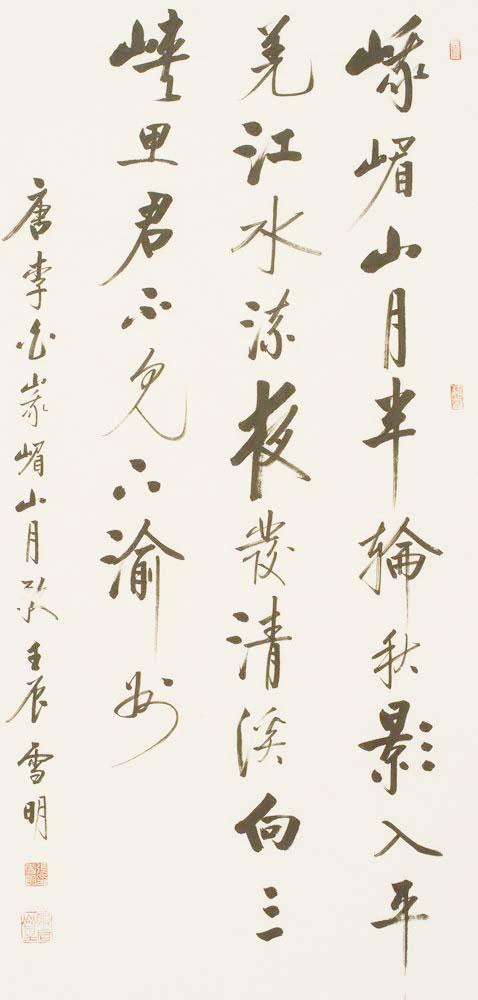 峨嵋山月半輪秋影入平
羌江水流夜發清溪向三
峡思君不見下渝州
唐李白峩嵋山月歌壬辰雪明